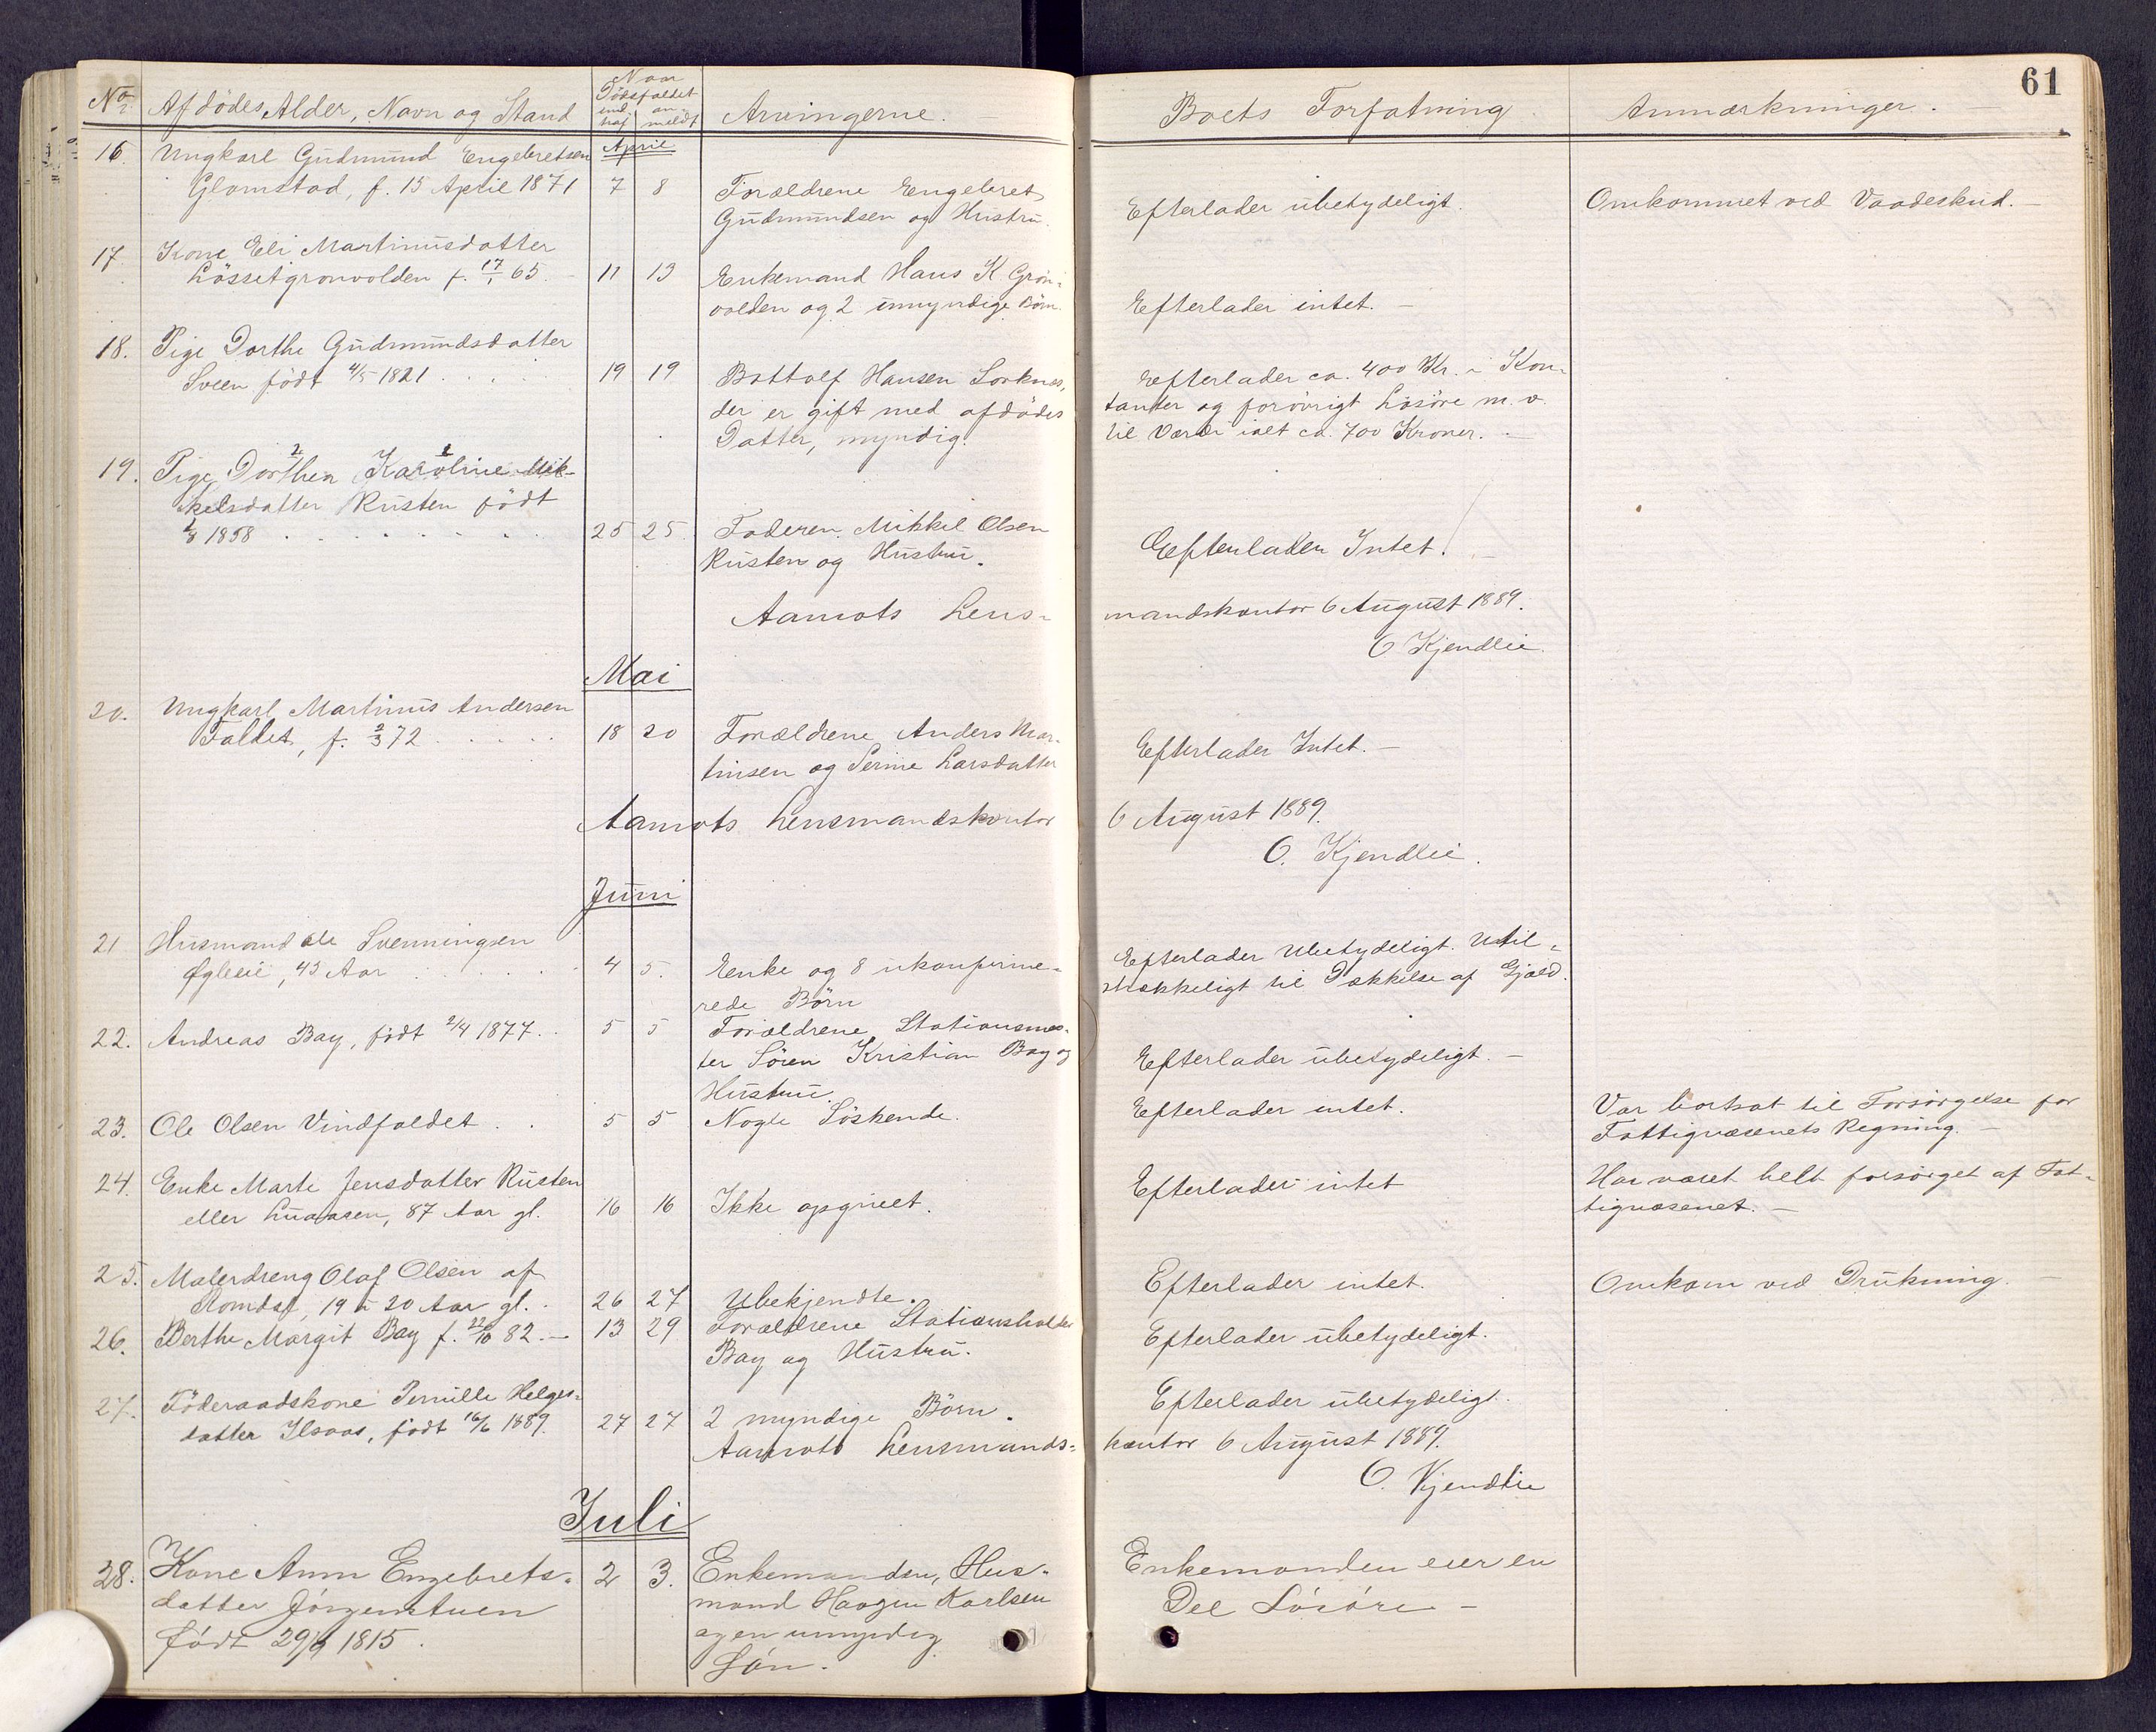 61
No. Afdödes Alder, Navn og Stand Naar Dödsfaldet indtraf anmeldt Arvingerne. Boets Forfatning Anmærkninger.
April
16. Ungkarl Gudmund Engebretsen
Glomstad, f. 15 April 1871 7 8 Forældrene Engebret
Gudmundsen og Hustru.
Efterlader übetydeligt. Omkommet ved Vaadeskud.
17. Kone Eli Martinusdatter
Lössetgronvolden f. 17/1 65 11 13 Enkemand Hans K Grön-
volden og 2 umyndige Börn.
Efterlader intet.
18. Pige Dorthe Gudmundsdatter
Sveen födt 4/5 1821 19 19 Bottolf Hansen Sorknes,
der er gift med afdödes
Datter, myndig.
Efterlader ca. 400 Kr. i Kon-
tanter og forövrigt Lösöre m. v.
til Værdi ialt ca. 700 Kroner.
19. Pige Dorthea Karoline Mik-
kelsdatter Rusten födt
1858 25 25. Faderen Mikkel Olsen
Rusten og Hustru.
Efterlader Intet.
Aamots Lens-
mandskontor 6 August 1889.
O Kjendlie.
Mai
20. Ungkarl Martinus Andersen
Faldet, f. 2/3 72 18 20 Forældrene Anders Mar-
tinsen og Serine Larsdatter
Efterlader Intet.
Aamots Lensmandskontor
6 August 1889.
O. Kjendlie.
Juni
21 Husmand Ole Svenningsen
Ögleie, 43 Aar 4 5. Enke og 8 ukonfirme-
rede Börn
Efterlader Ubetydeligt. Util-
strækkeligt til Dækkelse af Gjæld.
22. Andreas Bay, födt 2/4 1877. 5 5 Forældrene Stationsmes-
ter Sören Kristian Bay og
Hustru.
Efterlader übetydeligt.
23. Ole Olsen Vindfaldet 5 5 Nogle Söskende.
Efterlader intet. Var bortsat til Forsörgelse for
Fattigvæsenets Regning.
24. Enke Marte Jensdatter Rusten
eller Luaasen, 87 Aar gl. 16 16 Ikke opgivet.
Efterlader intet Har været helt forsörget af Fat-
tigvæsenet.
25. Malerdreng Olaf Olsen af
Romdst, 19 à 20 Aar gl. 26 27 Ubekjendte.
Efterlader intet. Omkom ved Drukning.
26. Berthe Margit Bay f. 22/10 82. 13 29 Forældrene Stationsholder
Bay og Hustru.
Efterlader übetydeligt.
27. Föderaadskone Pernille Helges-
datter Ilsaas, födt 16/6 1889. 27 27 2 myndige Börn.
Efterlader übetydeligt.
Aamots Lensmands-
kontor 6 August 1889.
O. Kjendlie
Juli
28. Kone Anne Engebrets-
datter Jörgenstuen
födt 29/9 1815. 2 3. Enkemanden, Hus-
mand Haagen Karlsen
og en umyndig
Sön.
Enkemanden eier en
Del Lösöre